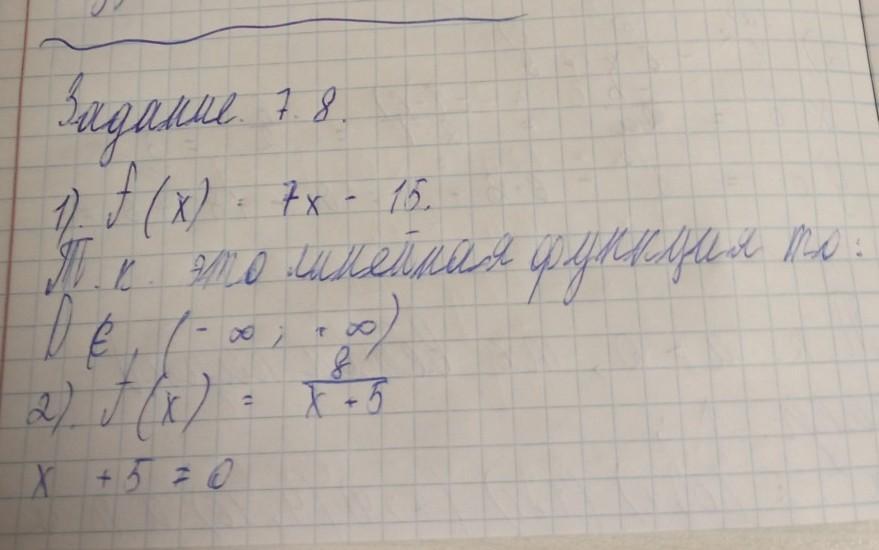 Задание. 7.8.
1). f(x) = 7x - 15.
Т.к. это линейная функция то:
D ∈ (-∞; +∞)
2). f(x) = 8/(x + 5)
x + 5 = 0